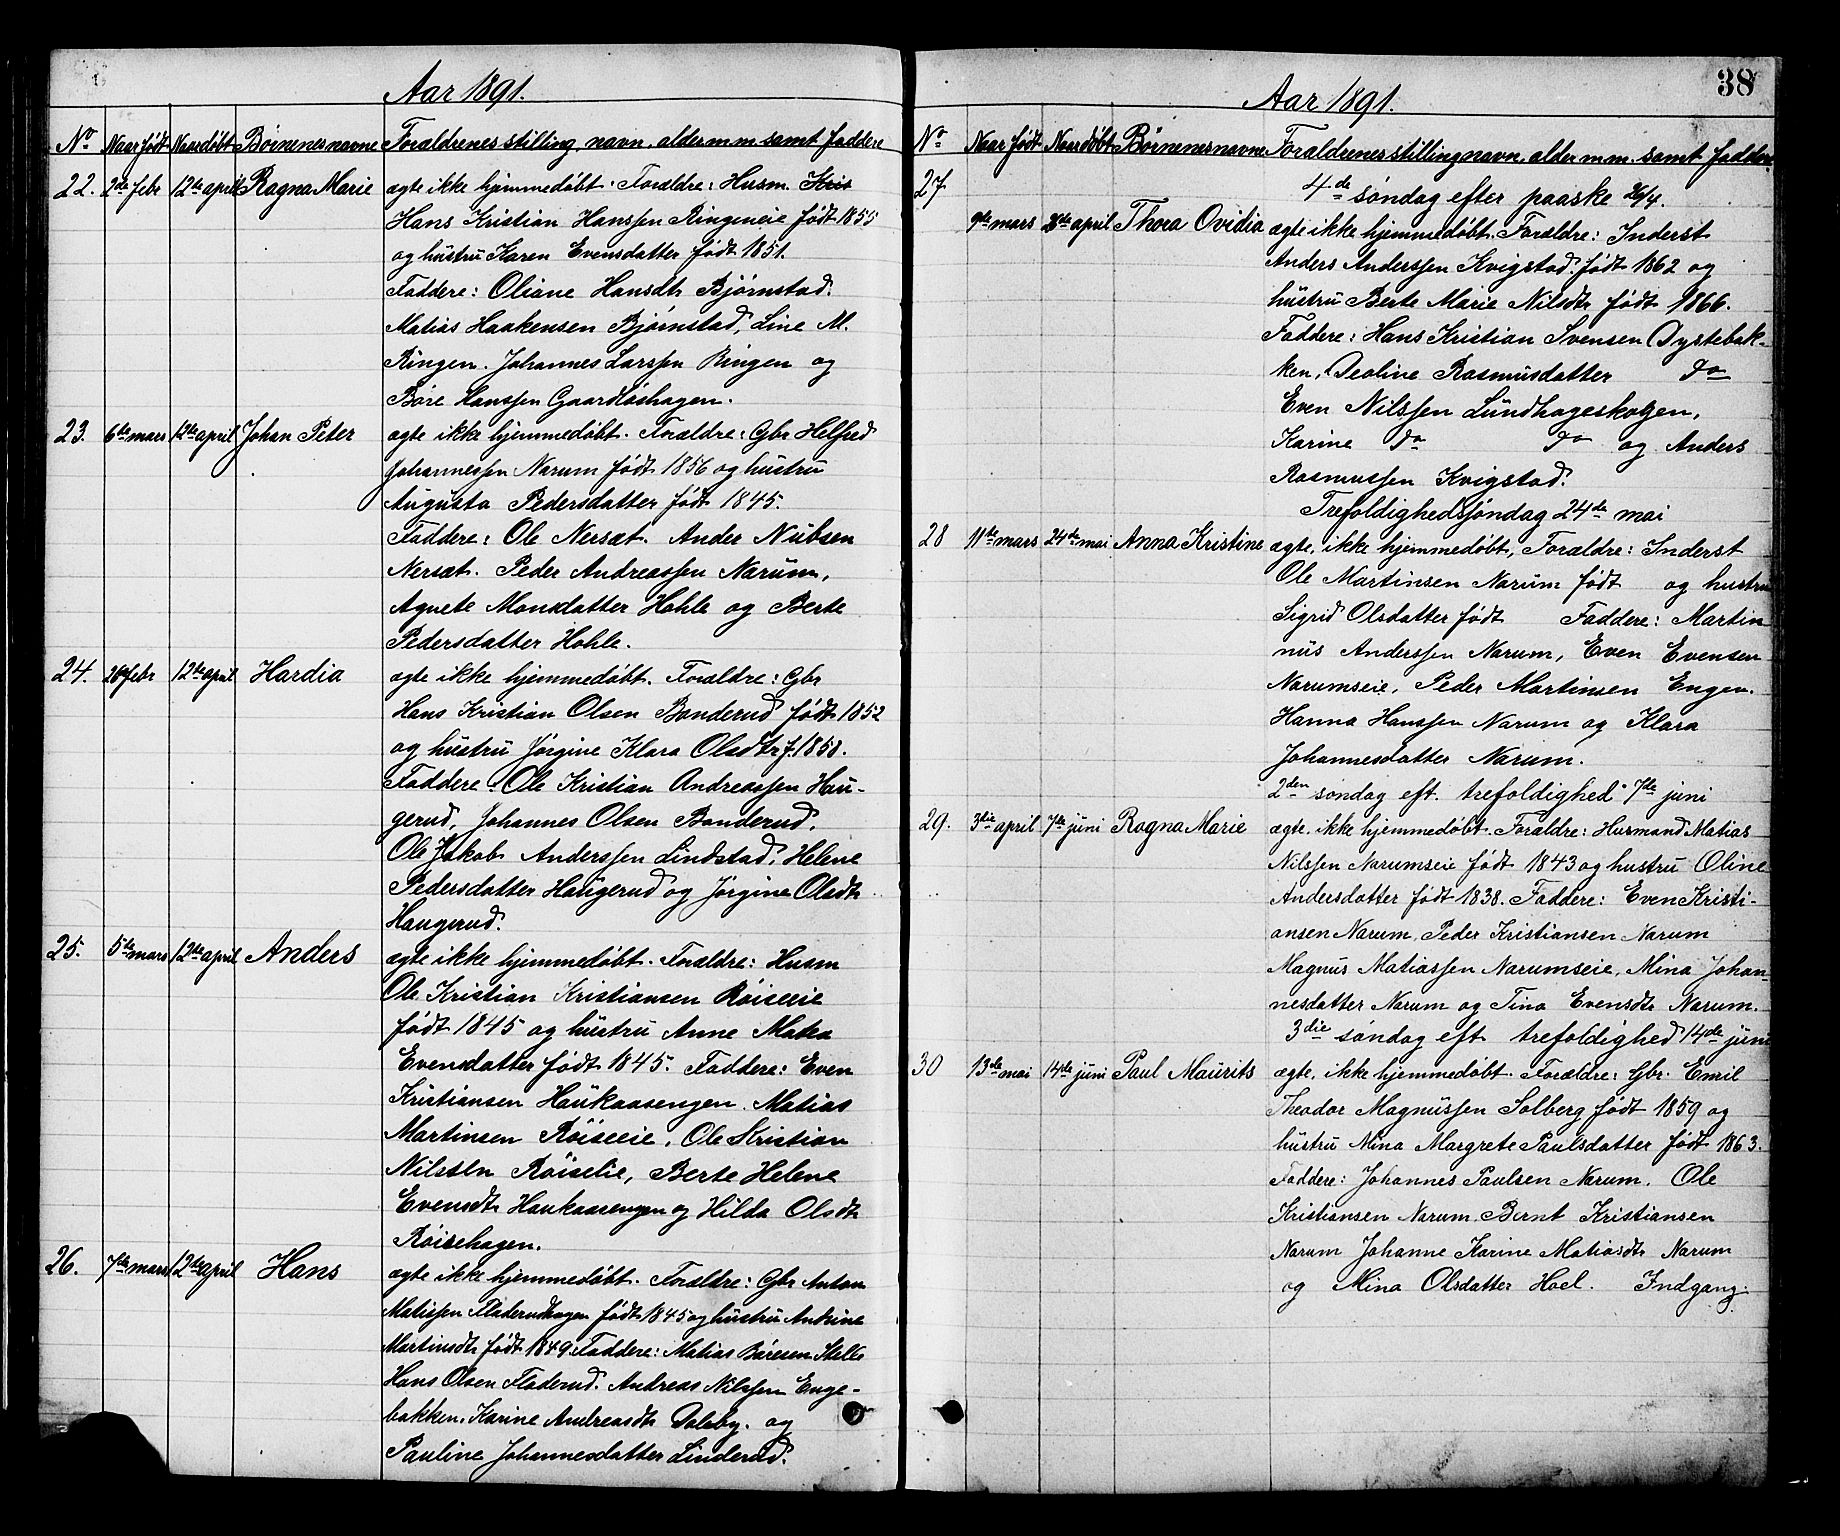 Aar 1891.
No Naar født Naar døbt Børnenes navne Forældrenes stilling, navn, alder m.m. samt faddere
22. 2de febr 12te april Ragna Marie ægte ikke hjemmedøbt. Forældre: Husm. Kris
Hans Kristian Hanssen Ringeneie født 1855
og hustru Karen Evensdatter født 1851.
Faddere: Oliane Hansdtr Bjørnstad.
Matias Haakensen Bjørnstad, Line M.
Ringen. Johannes Larssen Ringen og
Børe Hanssen Gaardløshagen.
23. 6te mars 12te april Johan Peter ægte ikke hjemmedøbt. Forældre: Gbr Helfred
Johannessen Narum født 1856 og hustru
Augusta Pedersdatter født 1845.
Faddere: Ole Nersæt. Ander Nubsen
Nersæt. Peder Andreassen Narum,
Agnete Monsdatter Hohle og Berte
Pedersdatter Hohle.
24. 26de febr 12te april Hardia ægte ikke hjemmedøbt. Forældre: Gbr
Hans Kristian Olsen Banderud født 1852
og hustru Jørgine Klara Olsdtr f. 1858.
Faddere: Ole Kristian Andreassen Hau-
gerud, Johannes Olsen Banderud,
Ole Jakob Anderssen Lindstad, Helene
Pedersdatter Haugerud og Jørgine Olsdtr
Haugerud.
25. 5te mars 12te april Anders ægte ikke hjemmedøbt. Forældre: Husm
Ole Kristian Kristiansen Røiseeie
født 1845 og hustru Anne Matea
Evensdatter født 1845. Faddere: Even
Kristiansen Haukaasengen. Matias
Martinsen Røiseeie, Ole Kristian
Nilssen Røiselie, Berte Helene
Evensdtr Haukaasengen og Hilda Olsdtr
Røisehagen.
26. 7de mars 12te april Hans ægte ikke hjemmedøbt. Forældre: Gbr Anton
Matissen Fladerudhagen født 1845 og hustru Antrine
Martinsdtr født 1849. Faddere: Matias Børesen Helle
Hans Olsen Fladerud. Andreas Nilssen Enge-
bakken. Karine Andreasdtr Dalsby. og
Pauline Johannesdatter Linderud.
38
Aar 1891.
No Naar født Naar døbt Børnenes navne Forældrenes stilling navn, alder m.m. samt faddere
27 4de søndag efter paaske 26/4.
9de mars 26de april Thora Ovidia ægte ikke hjemmedøbt. Forældre: Inderst
Anders Anderssen Kvigstad. født 1862 og
hustru Berte Marie Nilsdtr født 1866.
Faddere: Hans Kristian Svensen Dystebak-
ken, Deoline Rasmusdatter do
Even Nilssen Lundhageskogen,
Karine do do og Anders
Rasmussen Kvigstad.
Trefoldighedssøndag 24de mai
28 11te mars 24de mai Anna Kristine ægte, ikke hjemmedøbt, Forældre: Inderst
Ole Martinsen Narum født og hustru
Sigrid Olsdatter født Faddere: Martin
nus Anderssen Narum, Even Evensen
Narumseie, Peder Martinsen Engen.
Hanna Hanssen Narum og Klara
Johannesdatter Narum.
2den søndag eft. trefoldighed 7de juni
29. 3die april 7de juni Ragna Marie ægte, ikke hjemmedøbt. Forældre: Husmand Matias
Nilssen Narumseie født 1843 og hustru Oline
Andersdatter født 1838. Faddere: Even Kristi-
ansen Narum, Peder Kristiansen Narum
Magnus Matiassen Narumseie, Mina Johan-
nesdatter Narum og Tina Evensdtr Narum.
3die søndag eft trefoldighed 14de juni
30 13de mai 14de juni Paul Maurits ægte, ikke hjemmedøbt. Forældre: Gbr. Emil
Theodor Magnussen Solberg født 1859 og
hustru Mina Margrete Paulsdatter født 1863.
Faddere: Johannes Paulsen Narum. Ole
Kristiansen Narum, Bernt Kristiansen
Narum Johanne Karine Matiasdtr Narum
og Mina Olsdatter Hoel. Indgang: